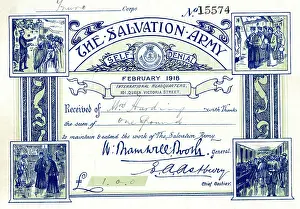 Corps No 15574
THE SALVATION ARMY
SELF DENIAL
FEBRUARY 1918
INTERNATIONAL HEADQUARTERS,
101, QUEEN VICTORIA STREET.
Received of Mrs Harding with Thanks
the sum of One Pound
to maintain & extend the work of The Salvation Army.
W. Bramwell Booth General.
Chief Cashier.
£ 1.0.0